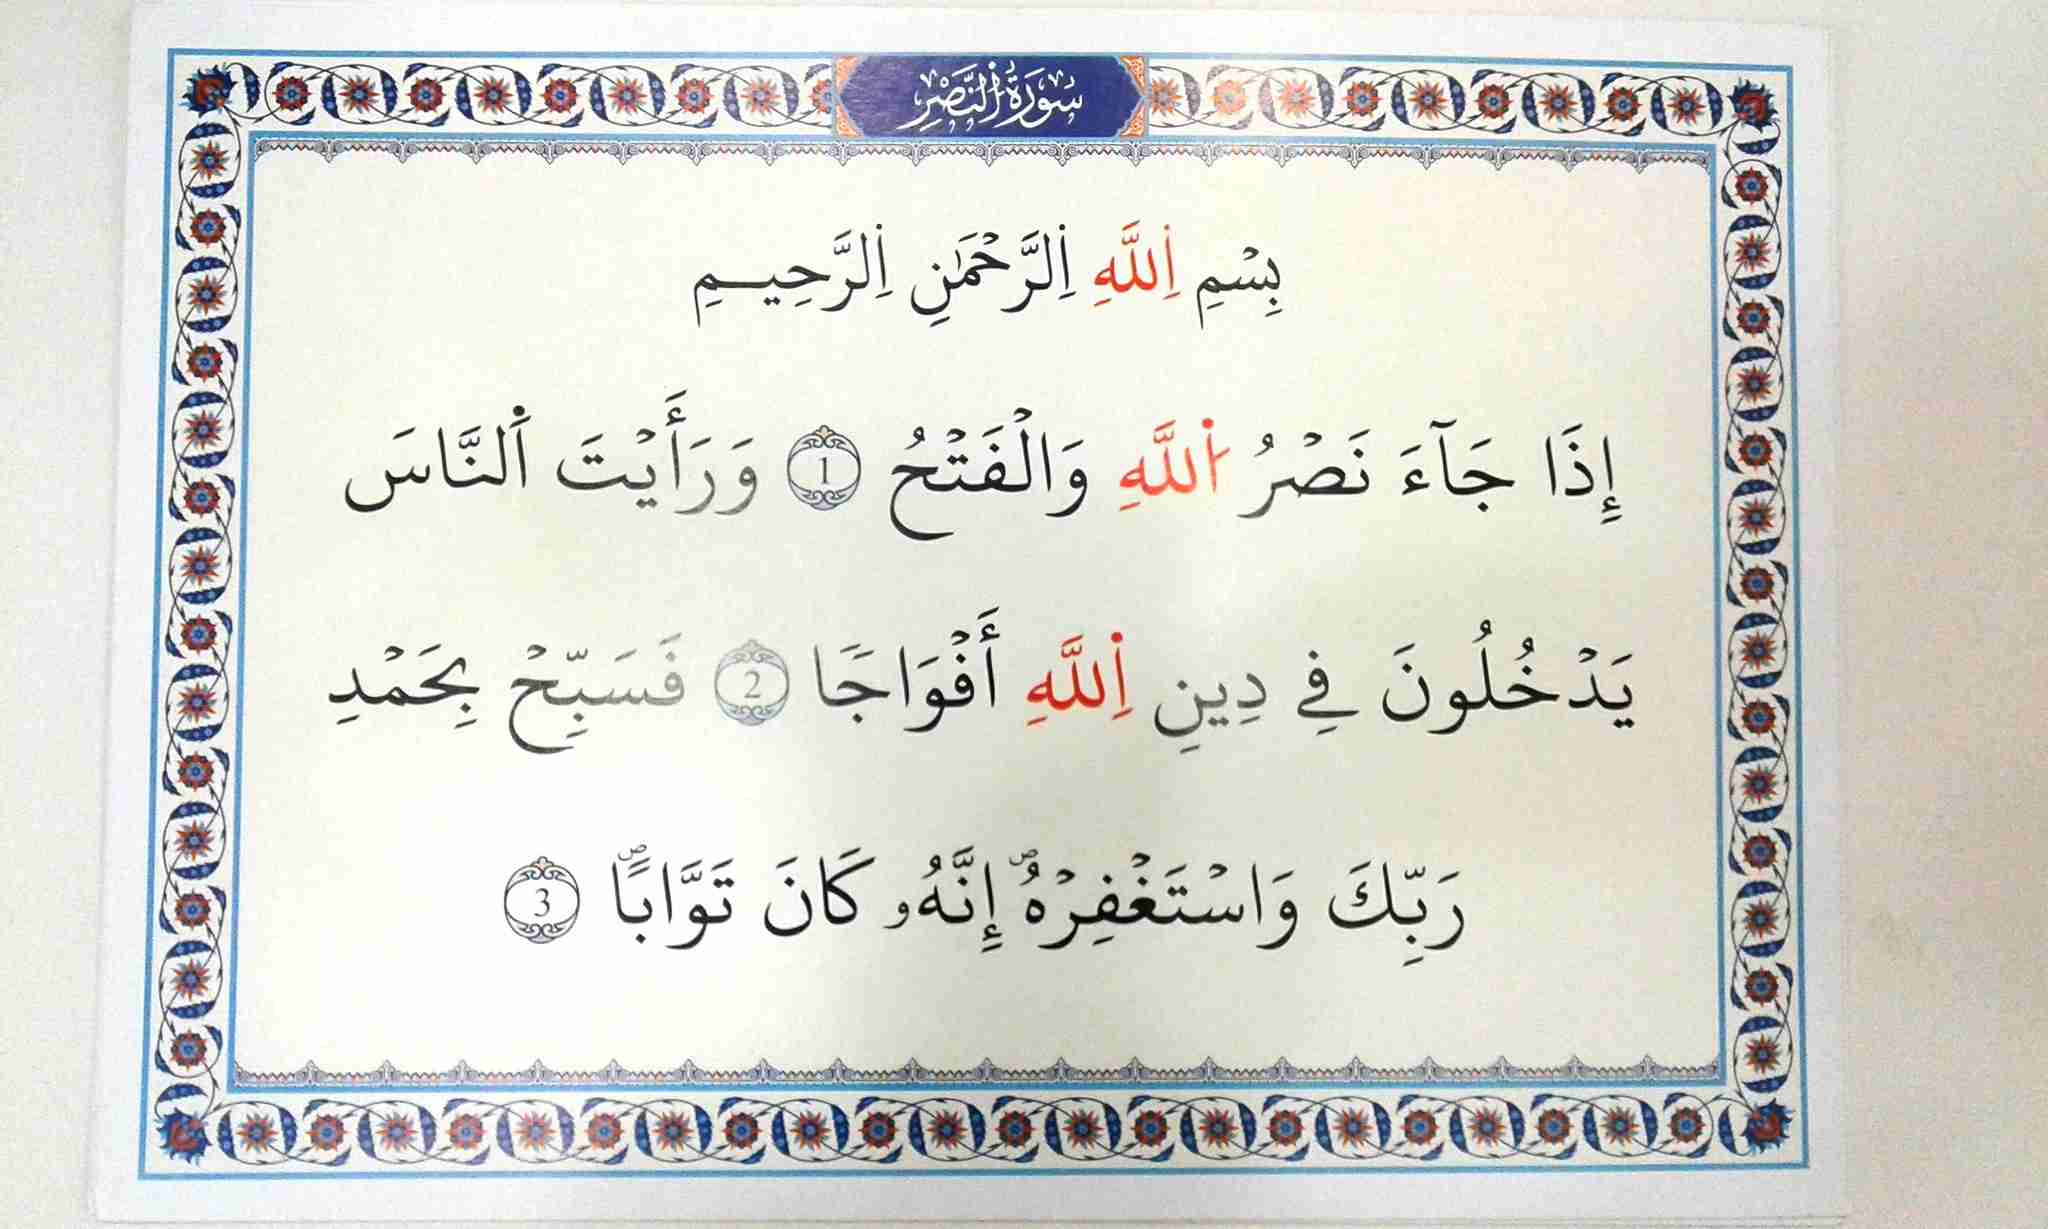 سُورَةُ النَّصْرِ
بِسْمِ اِ۬للَّهِ اِ۬لرَّحْمَٰنِ اِ۬لرَّحِيمِ
إِذَا جَآءَ نَصْرُ اُ۬للَّهِ وَالْفَتْحُ 1 وَرَأَيْتَ اَ۬لنَّاسَ
يَدْخُلُونَ فِے دِينِ اِ۬للَّهِ أَفْوَاجَا 2 فَسَبِّحْ بِحَمْدِ
رَبِّكَ وَاسْتَغْفِرْهُۖ إِنَّهُۥ كَانَ تَوَّابَاۖ 3